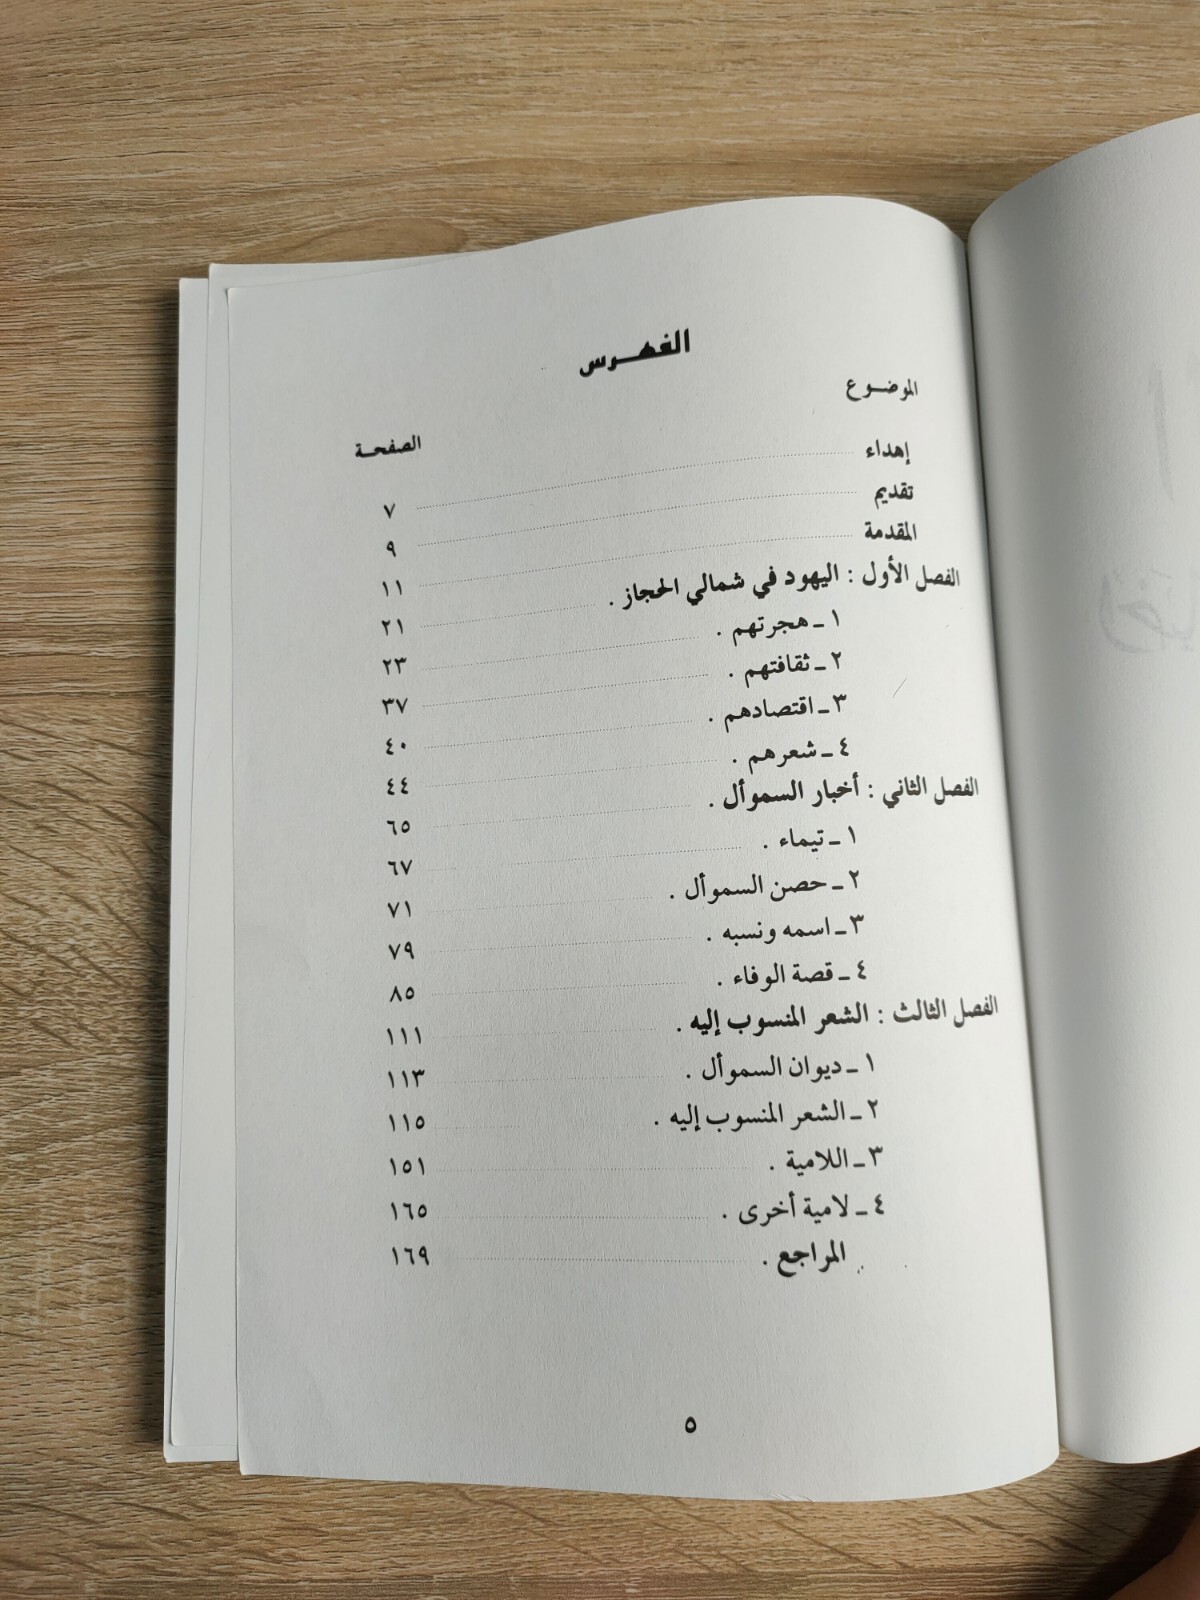 الفهـرس
الموضـوع
الصفحـة
إهداء ........ ٧
تقديم ........ ٩
المقدمة ........ ١١
الفصل الأول : اليهود في شمالي الحجاز . ........ ٢١
١ ـ هجرتهم . ........ ٢٣
٢ ـ ثقافتهم . ........ ٣٧
٣ ـ اقتصادهم . ........ ٤٠
٤ ـ شعرهم . ........ ٤٤
الفصل الثاني : أخبار السموأل . ........ ٦٥
١ ـ تيماء . ........ ٦٧
٢ ـ حصن السموأل . ........ ٧١
٣ ـ اسمه ونسبه . ........ ٧٩
٤ ـ قصة الوفاء . ........ ٨٥
الفصل الثالث : الشعر المنسوب إليه . ........ ١١١
١ ـ ديوان السموأل . ........ ١١٣
٢ ـ الشعر المنسوب إليه . ........ ١١٥
٣ ـ اللامية . ........ ١٥١
٤ ـ لامية أخرى . ........ ١٦٥
المراجع . ........ ١٦٩
٥